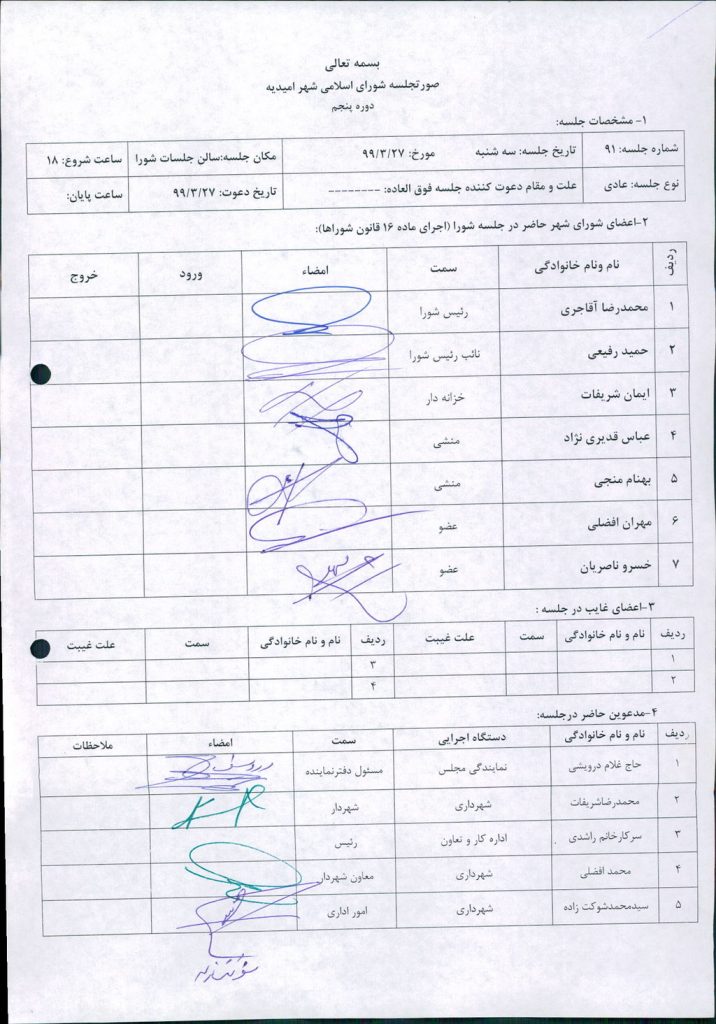 بسمه تعالی
صورتجلسه شورای اسلامی شهر امیدیه
دوره پنجم
۱- مشخصات جلسه:
شماره جلسه: ۹۱ تاریخ جلسه: سه شنبه مورخ: ۹۹/۳/۲۷ مکان جلسه:سالن جلسات شورا ساعت شروع: ۱۸
نوع جلسه: عادی علت و مقام دعوت کننده جلسه فوق العاده: -------- تاریخ دعوت: ۹۹/۳/۲۷ ساعت پایان:
۲-اعضای شورای شهر حاضر در جلسه شورا (اجرای ماده ۱۶ قانون شوراها):
ردیف نام ونام خانوادگی سمت امضاء ورود خروج
۱ محمدرضا آقاجری رئیس شورا
۲ حمید رفیعی نائب رئیس شورا
۳ ایمان شریفات خزانه دار
۴ عباس قدیری نژاد منشی
۵ بهنام منجی منشی
۶ مهران افضلی عضو
۷ خسرو ناصریان عضو
۳-اعضای غایب در جلسه :
ردیف نام و نام خانوادگی سمت علت غیبت ردیف نام و نام خانوادگی سمت علت غیبت
۱ ۳
۲ ۴
۴-مدعوین حاضر درجلسه:
ردیف نام و نام خانوادگی دستگاه اجرایی سمت امضاء ملاحظات
۱ حاج غلام درویشی نمایندگی مجلس مسئول دفترنماینده
۲ محمدرضاشریفات شهرداری شهردار
۳ سرکارخانم راشدی اداره کار و تعاون رئیس
۴ محمد افضلی شهرداری معاون شهردار
۵ سیدمحمدشوکت زاده شهرداری امور اداری